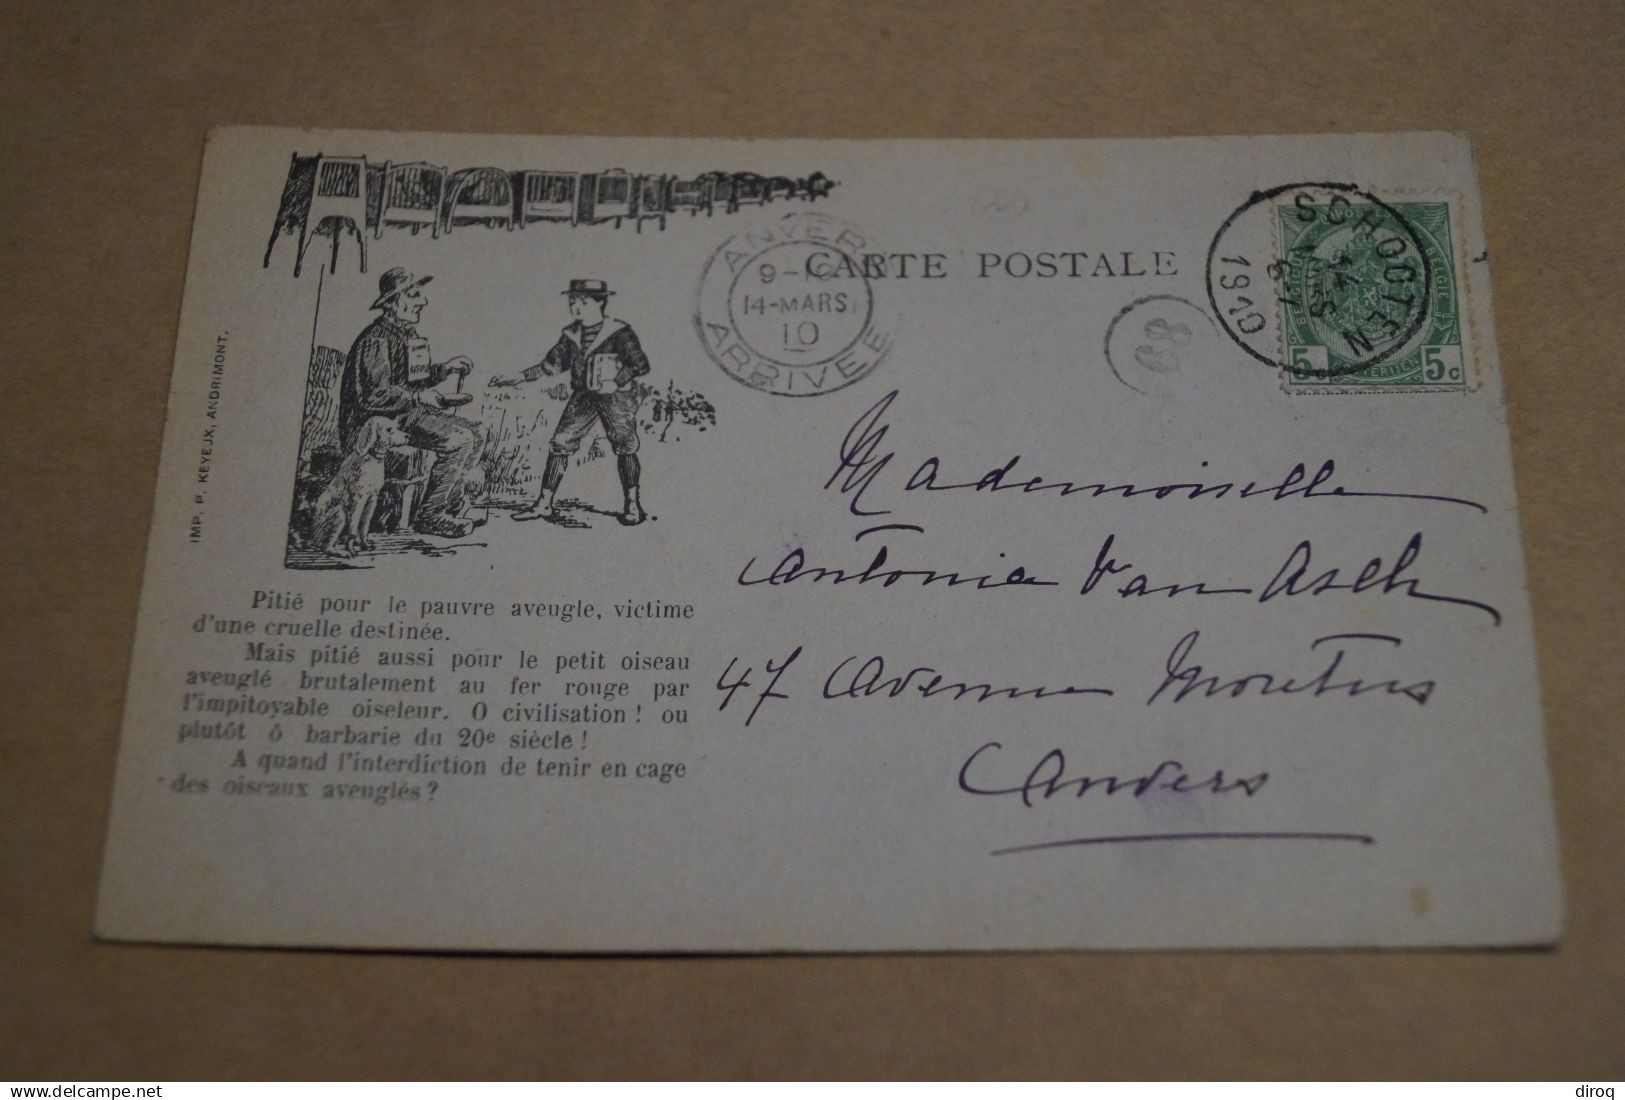 CARTE POSTALE
ANVERS
9-10
14-MARS
10
ARRIVEE
89
SCHOOTEN
14
MARS
1910
BELGIE
5c
5c
IMP. P. KEYEUX, ANDRIMONT.
Pitié pour le pauvre aveugle, victime
d'une cruelle destinée.
Mais pitié aussi pour le petit oiseau
aveuglé brutalement au fer rouge par
l'impitoyable oiseleur. O civilisation ! ou
plutôt ô barbarie du 20e siècle !
A quand l'interdiction de tenir en cage
des oiseaux aveuglés ?
Mademoiselle
Antonia Van Asch
47 Avenue Moretus
Anvers
delcampe.net
diroq